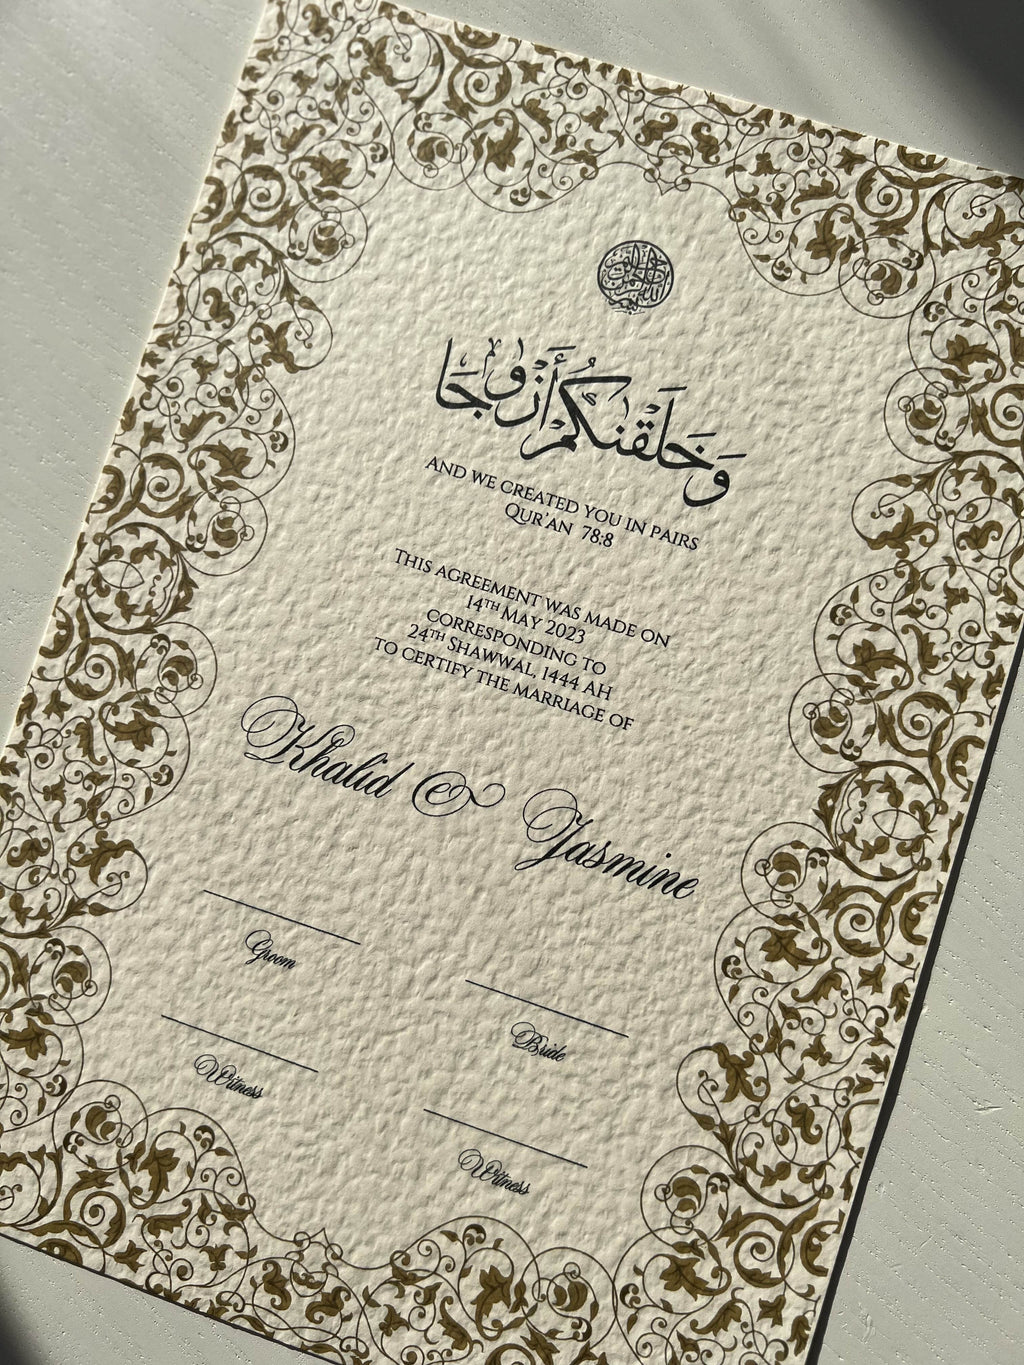 بسم الله الرحمن الرحيم
وَخَلَقْنَٰكُمْ أَزْوَٰجًا
AND WE CREATED YOU IN PAIRS
QUR'AN 78:8
THIS AGREEMENT WAS MADE ON
14TH MAY 2023
CORRESPONDING TO
24TH SHAWWAL, 1444 AH
TO CERTIFY THE MARRIAGE OF
Khalid & Jasmine
Groom
Bride
Witness
Witness